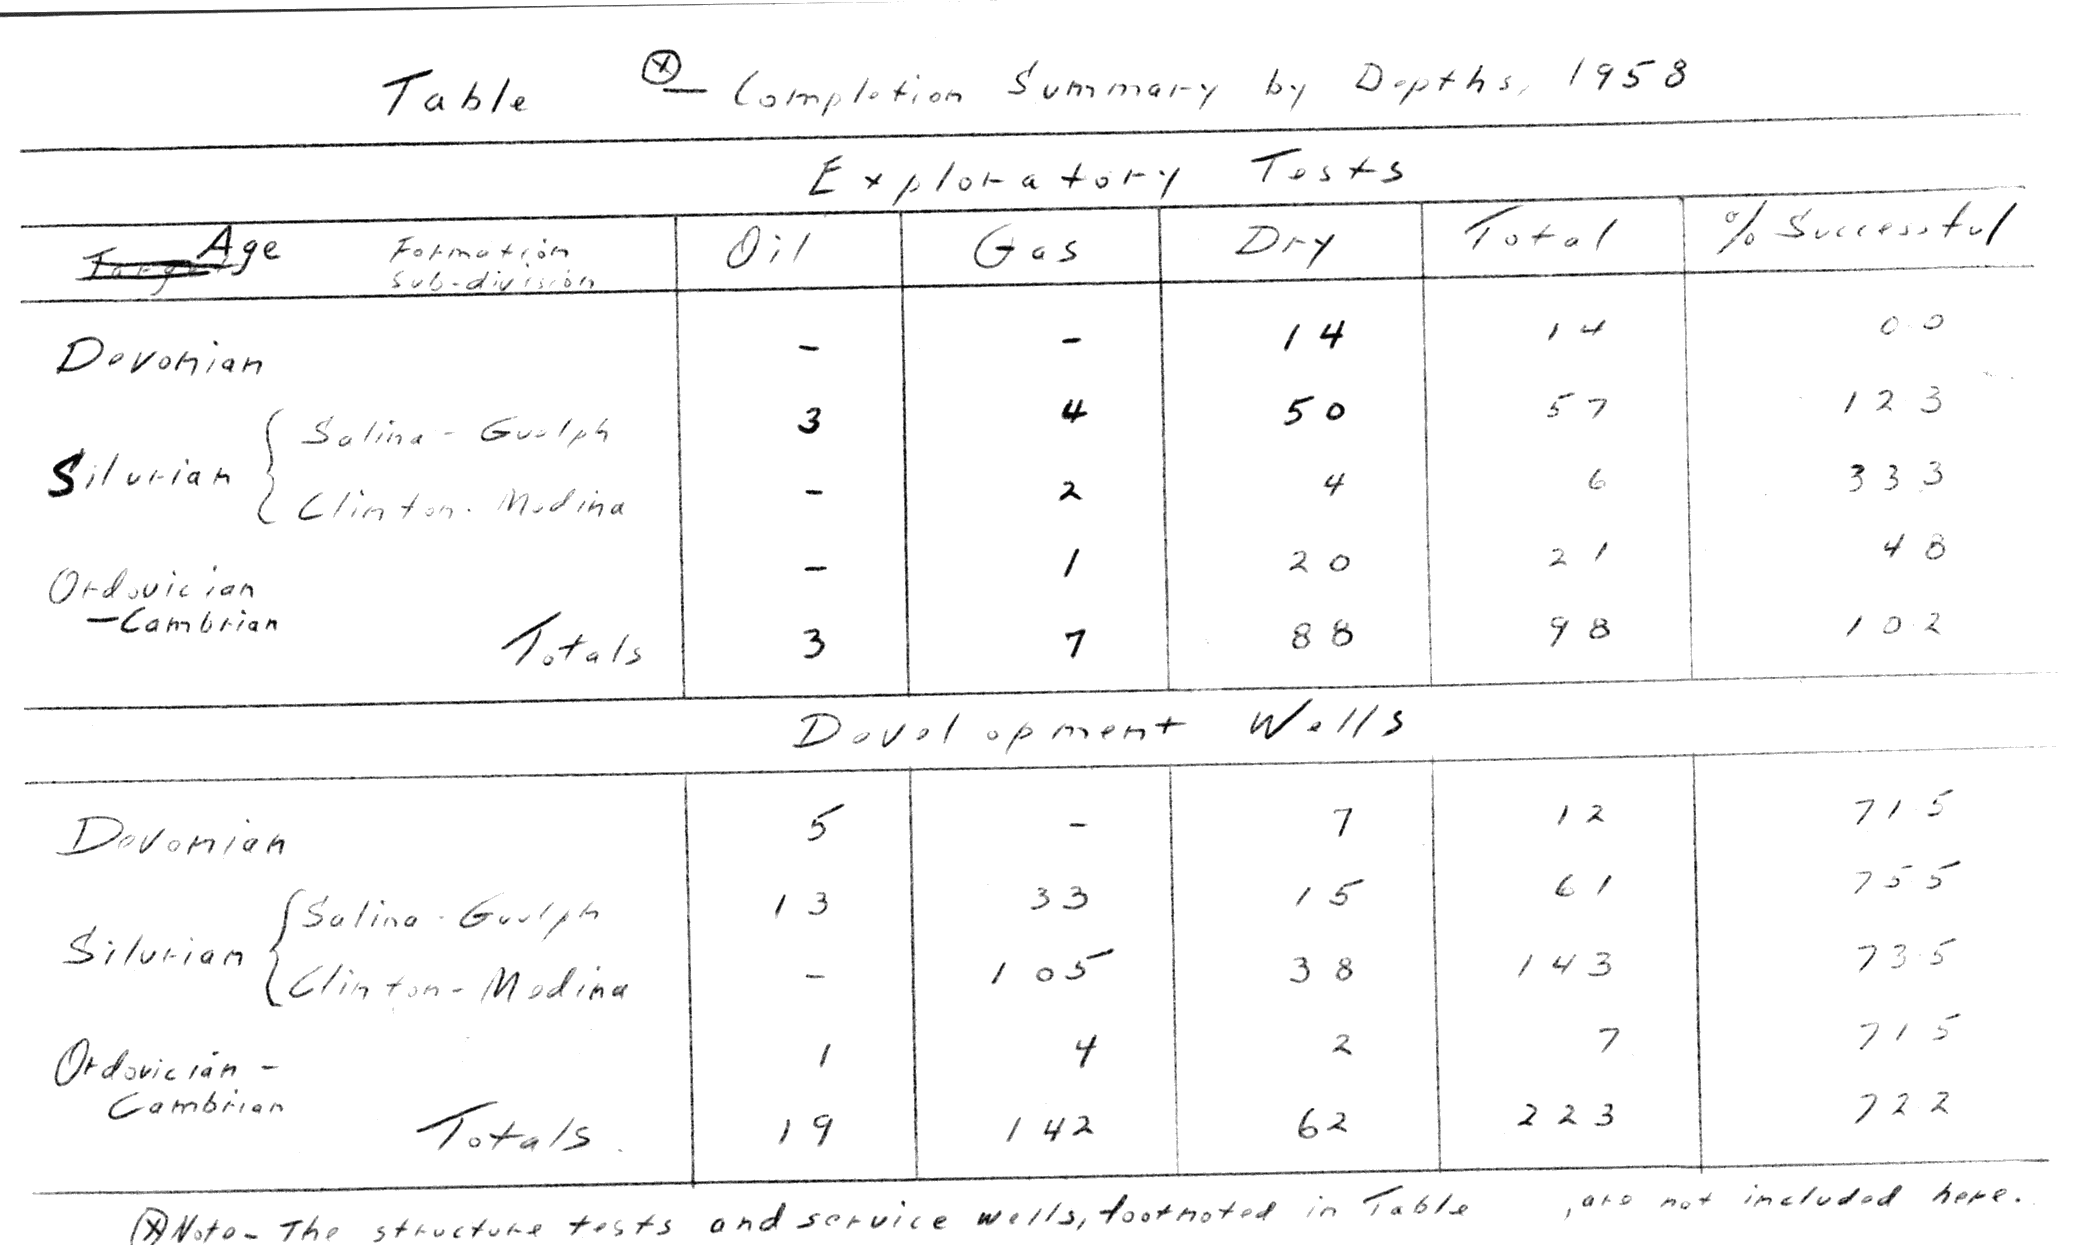 Table ⊗— Completion Summary by Depths, 1958
Exploratory Tests
Age Formation Sub-division Oil Gas Dry Total % Successful
Devonian - - 14 14 0.0
Silurian { Salina-Guelph 3 4 50 57 12.3
Clinton-Medina - 2 4 6 33.3
Ordovician
-Cambrian - 1 20 21 4.8
Totals 3 7 88 98 10.2
Development Wells
Devonian 5 - 7 12 71.5
Silurian { Salina-Guelph 13 33 15 61 75.5
Clinton-Medina - 105 38 143 73.5
Ordovician-
Cambrian 1 4 2 7 71.5
Totals. 19 142 62 223 72.2
⊗Note- The structure tests and service wells, footnoted in Table , are not included here.